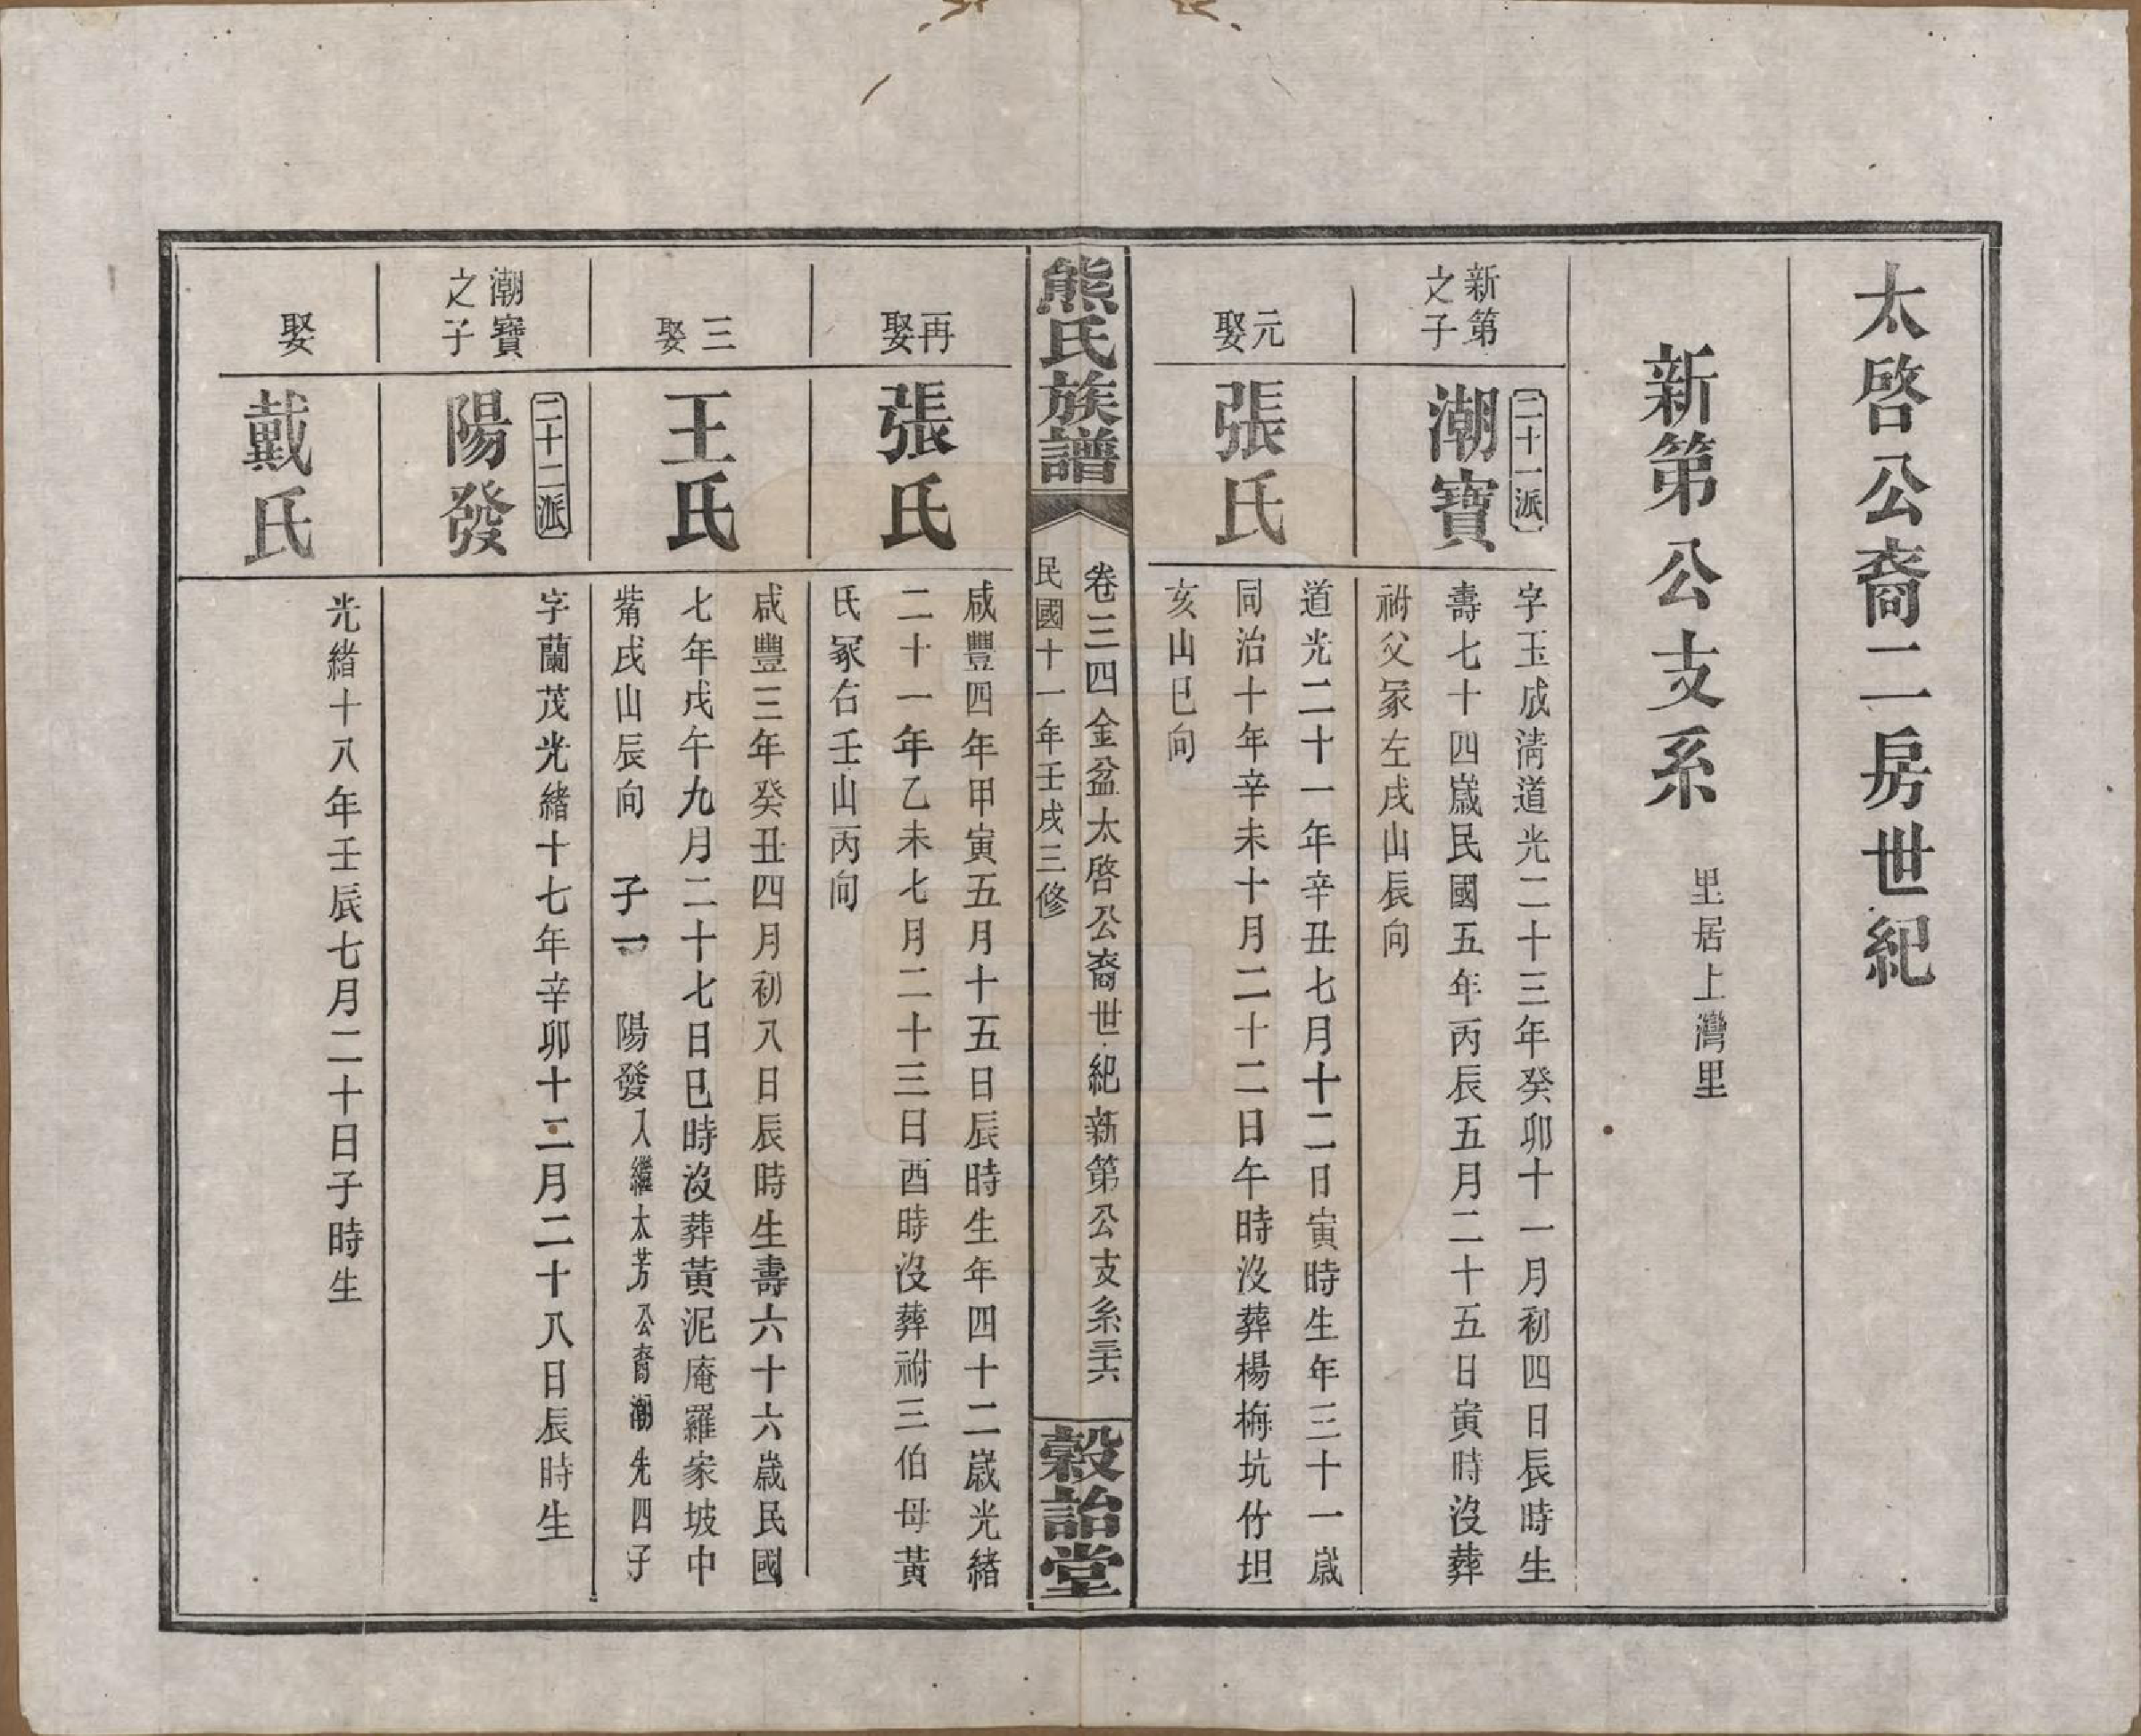 太啓公裔二房世紀
新第公支系
里居上灣里
新第
之子
二十一派
潮寶
字玉成淸道光二十三年癸卯十一月初四日辰時生
壽七十四歲民國五年丙辰五月二十五日寅時沒葬
祔父冢左戌山辰向
元娶
張氏
道光二十一年辛丑七月十二日寅時生年三十一歲
同治十年辛未十月二十二日午時沒葬楊梅坑竹坦
亥山巳向
熊氏族譜
卷三四金盆太啓公裔世紀新第公支系三十六
民國十一年壬戌三修
穀詒堂
再娶
張氏
咸豐四年甲寅五月十五日辰時生年四十二歲光緒
二十一年乙未七月二十三日酉時沒葬祔三伯母黃
氏冢右壬山丙向
三娶
王氏
咸豐三年癸丑四月初八日辰時生壽六十六歲民國
七年戊午九月二十七日巳時沒葬黃泥庵羅家坡中
觜戌山辰向 子一 陽發入繼太芳公裔潮先四子
潮寶
之子
二十二派
陽發
字蘭茂光緒十七年辛卯十二月二十八日辰時生
娶
戴氏
光緒十八年壬辰七月二十日子時生